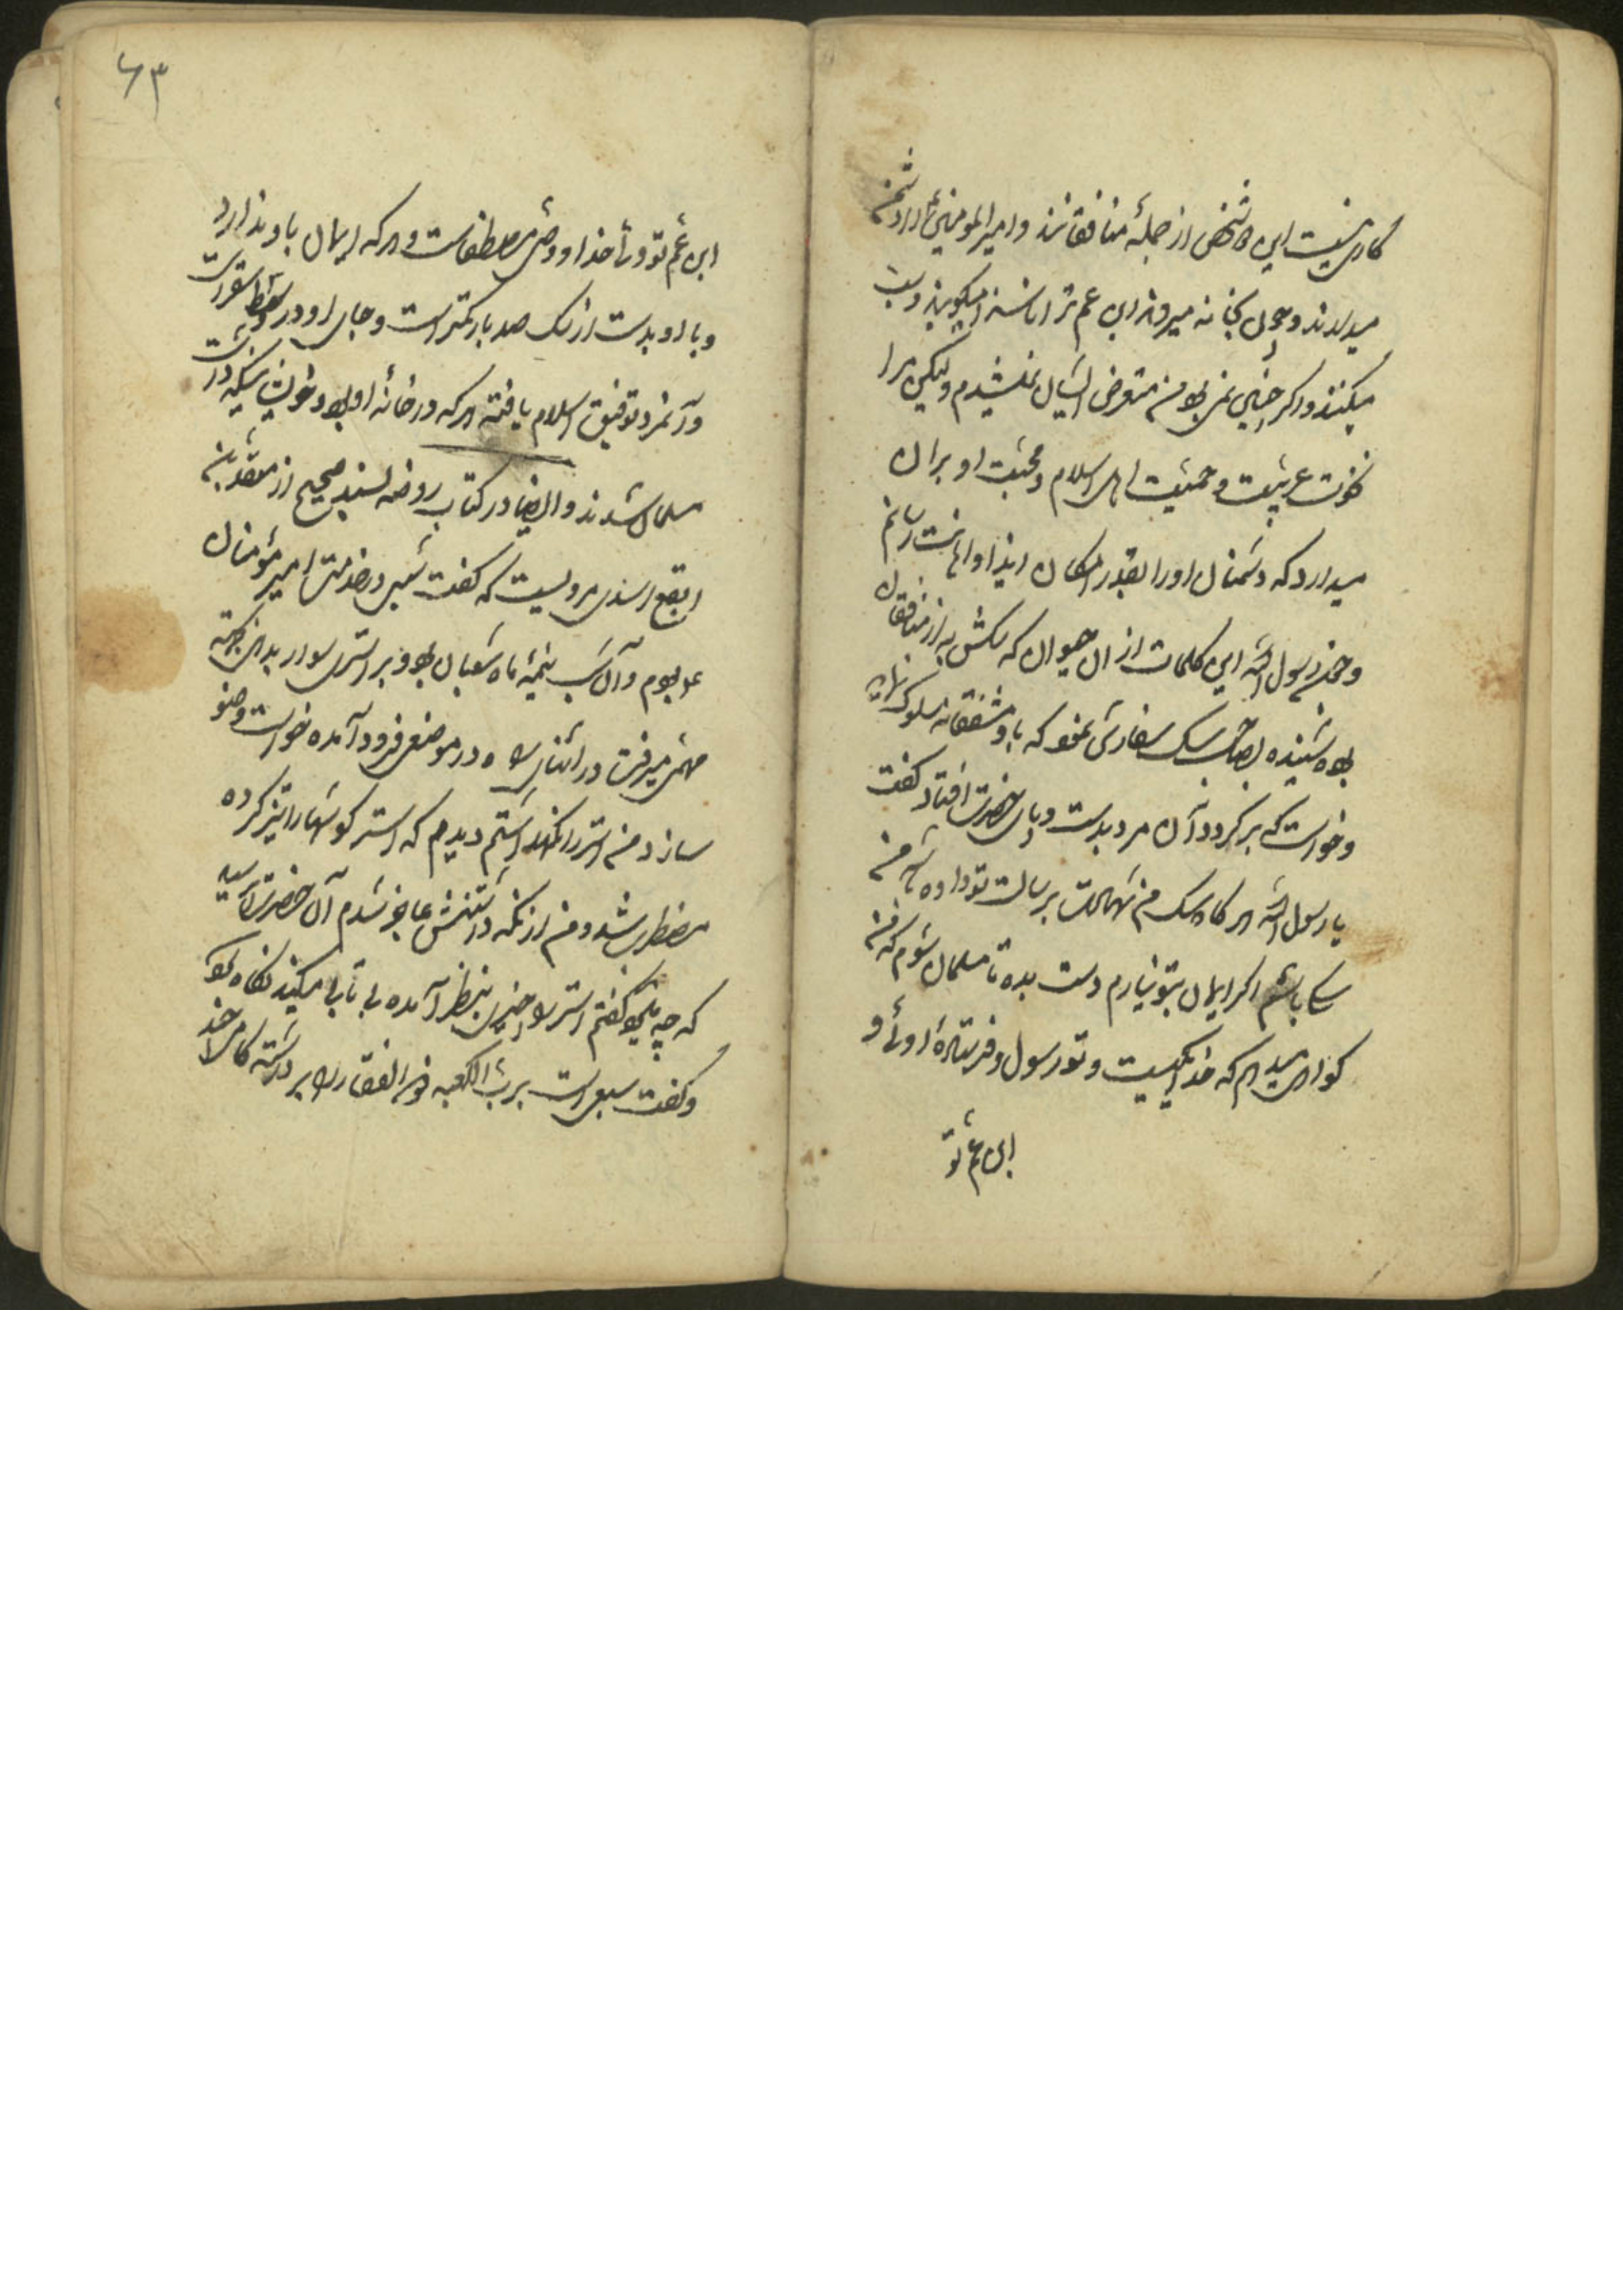 کاری نیست این دو شخص از جملهٔ منافقانند و امیر المومنین را دشمن
میدارند و چون بخانه میروند ابن عم ترا ناسزا میکویند و سب
میکنند و اکر چنین نمی بود من متعرض ایشان نمیشدم ولیکن مرا
عربیت و حمیت اهل اسلام و محبت او بران
میدارد که دشمنان او را بقدر امکان ایذا و اهانت رسانم
و حضرت رسول الله این کلمات از ان حیوان که سکش به از منافقان
بود شنیده بصاحب سک سفارش نمود که با او مشفقانه سلوک نماید
و خواست که بر کردد آن مرد بدست و پای حضرت افتاد و کفت
یا رسول الله هر کاه سک من شهادت برسالت تو داده باشد من
سک باشم اکر ایمان بتو نیارم دست بده تا مسلمان شوم که من
کواهی میدهم که خدا یکیست و تو رسول و فرستادهٔ اوئی و
ابن عم تو
۶۳
ابن عم تو ولی خدا و وصی مصطفاست و هر که ایمان باو ندارد
و با او بدست از سک صد بار کمتر است و جای او در سقر است
و آنمرد توفیق اسلام یافته هر که در خانهٔ او بود و خویشانیکه داشت
مسلمان شدند و ایضا در کتاب روضه بسند صحیح از
اسدی مرویست که کفت شبی در خدمت امیر مؤمنان
بودم و آن شب نیمهٔ ماه شعبان بود و بر استری سوار بود بجهة
مهمی میرفت در اثنای راه در موضعی فرود آمده خواست وضو
سازد من استر را نکهداشتم دیدم که استر کوشها را تیز کرده
مضطرب شد و من از نکه داشتنش عاجز شدم آن حضرت پرسید
که چه میشود کفتم استر را چیزی بنظر آمده بی تابی میکند نکاه کرد
و کفت سبع است برب الکعبه ذو الفقار را برداشته کامی چند